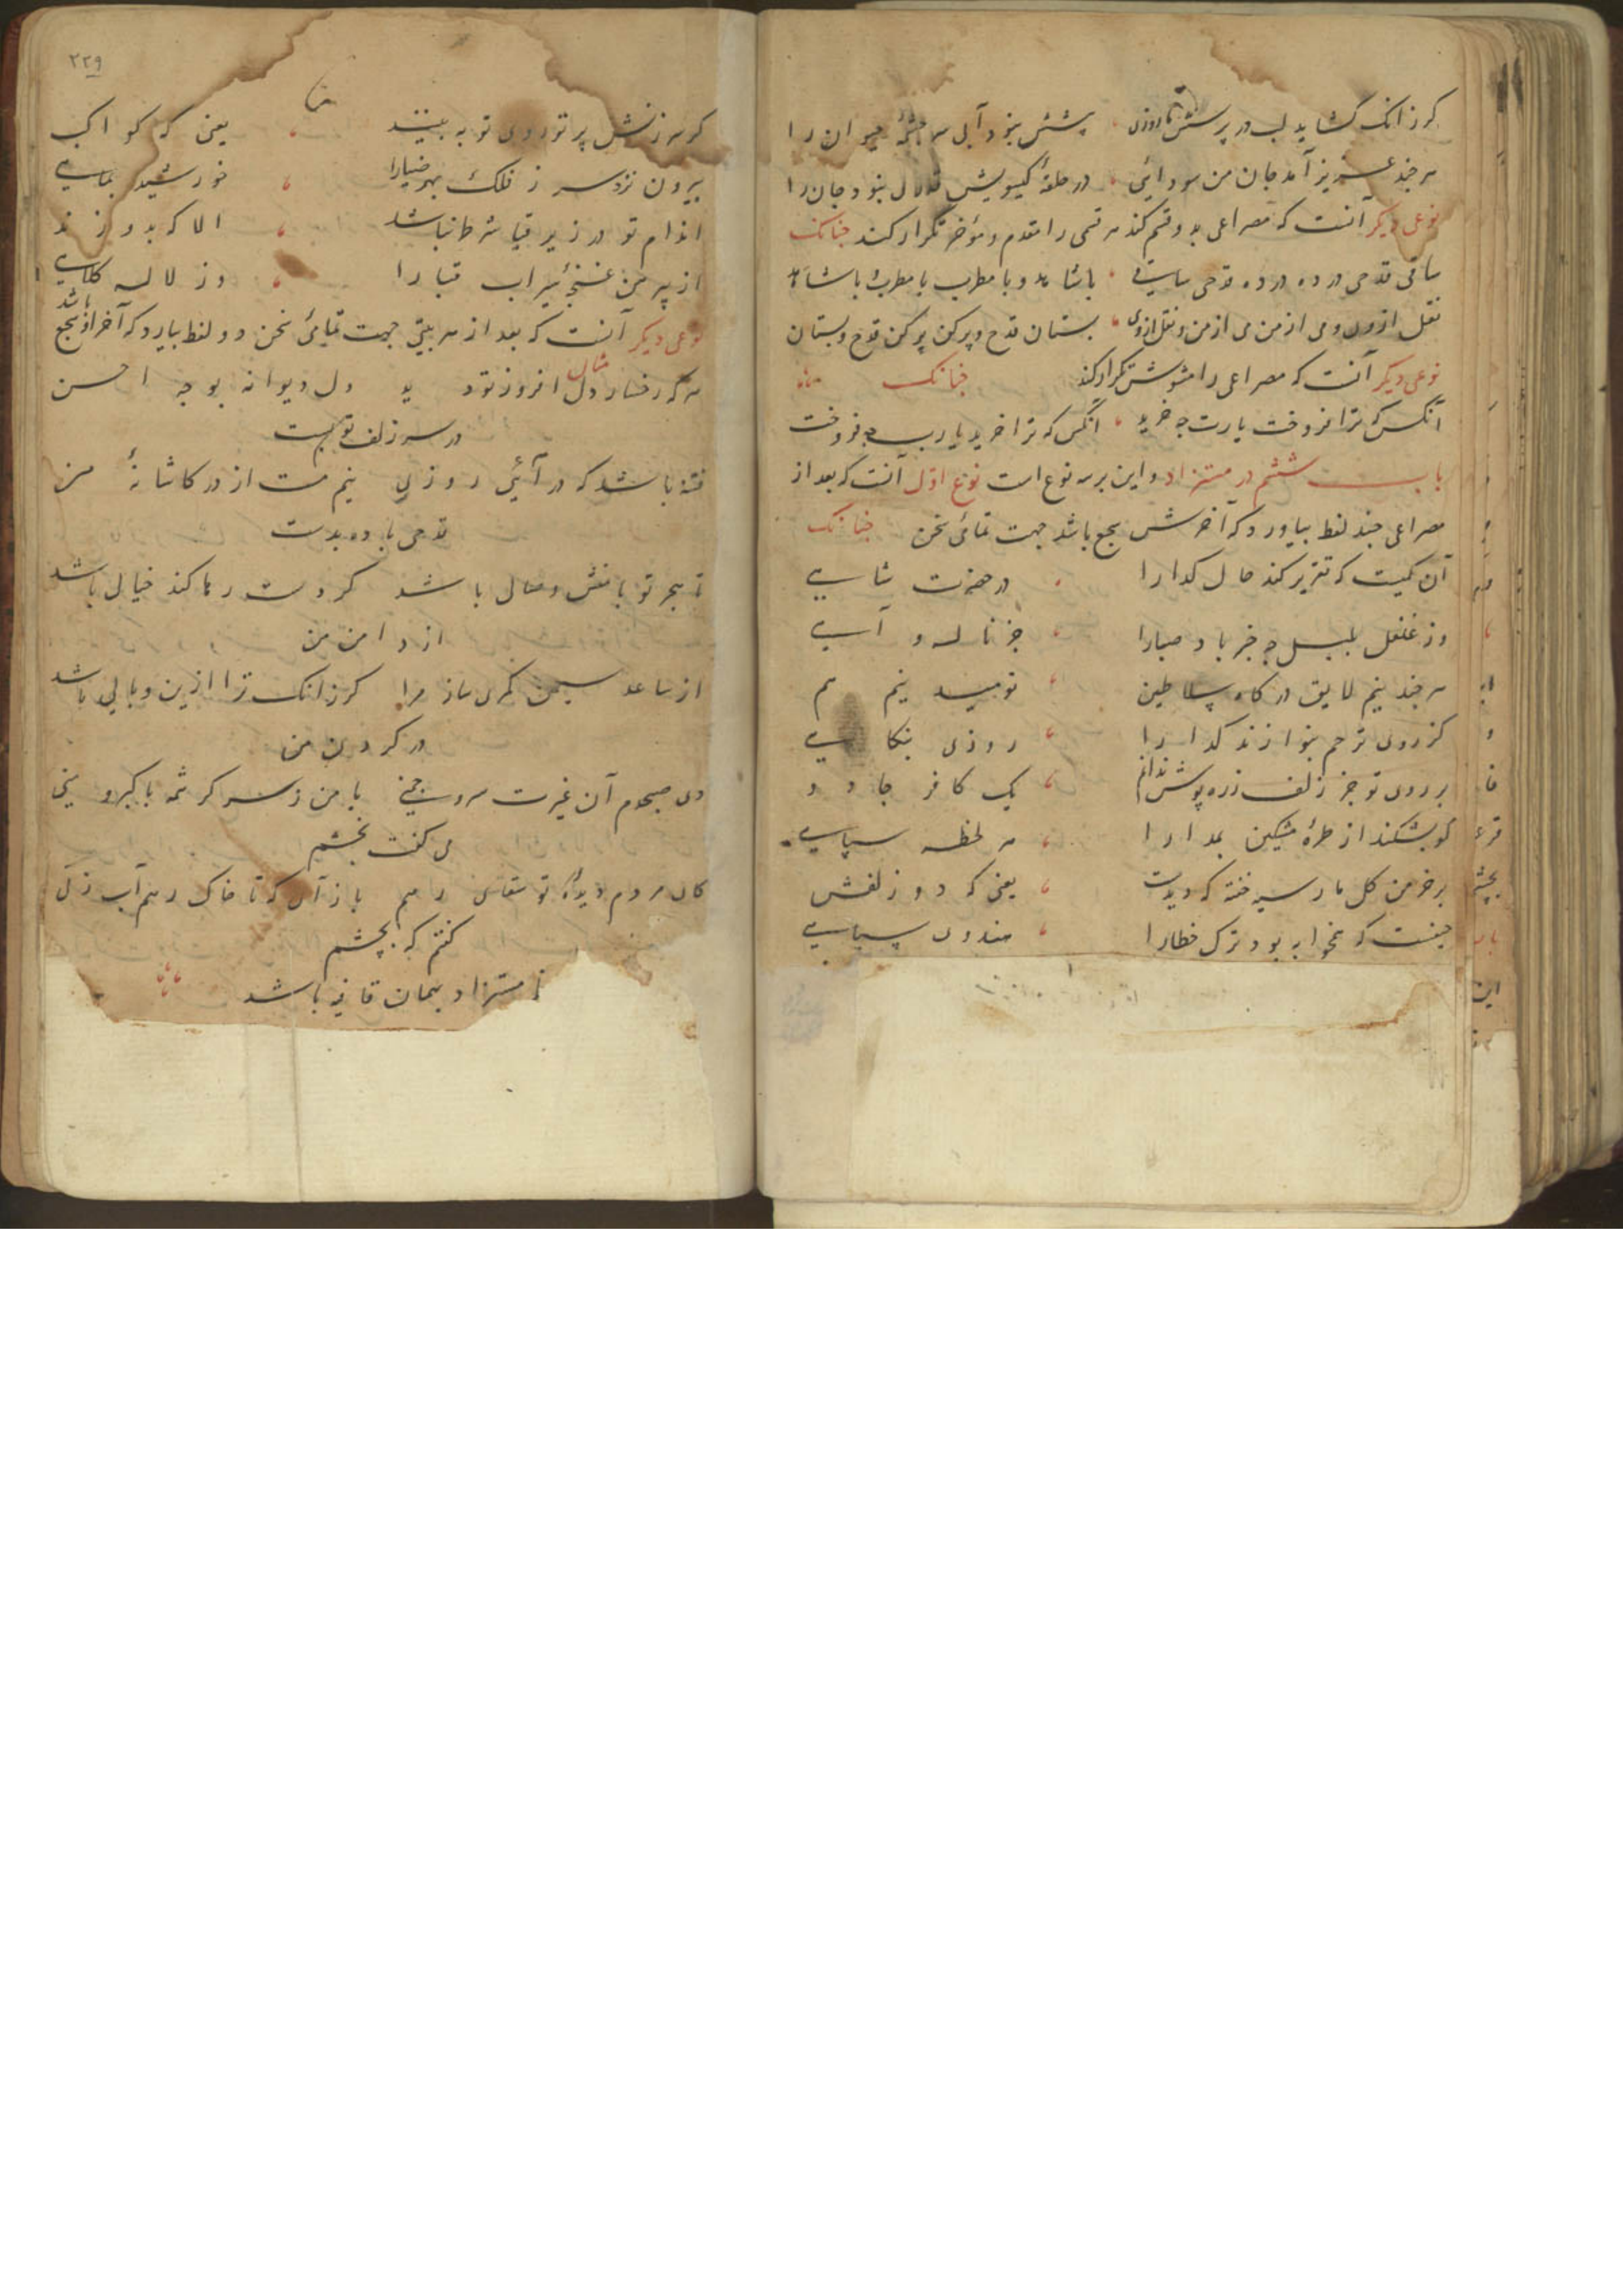 کرزانک کشاید لب در پرسش ما روزی پیشش نبود آبی سرچشمهٔ حیوان را
هرچند عزیز آمد جان من سودائی در حلقهٔ کیسویش قدری نبود جان را
نوعی دیکر آنست که مصراعی بدو قسم کند هر قسمی را مقدم و مؤخر تکرار کند چنانک
ساقی قدحی در ده در ده قدحی ساقی با شاهد و با مطرب با مطرب و با شاهد
نقل از وی و می از من می از من و نقل از وی بستان قدح و پر کن پر کن قدح و بستان
نوعی دیکر آنست که مصراعی را مشوش تکرار کند چنانک
آنکس که ترا فروخت یارب چه خرید آنکس که ترا خرید یارب چه فروخت
باب ششم در مستزاد و این بر سه نوع است نوع اول آنست که بعد از
مصراعی چند لفظ بیاورد که آخرش سجع باشد جهت تمامی سخن چنانک
آن کیست که تقریر کند حال کدا را در حضرت شاهی
وز غلغل بلبل چه خبر باد صبا را جز ناله و آهی
هرچند نیم لایق درکاه سلاطین نومید نیم هم
کز روی ترحم بنوازند کدا را روزی بنکاهی
بر روی تو جز زلف زره پوش ندانم یک کافر جادو
کو بشکند از طرهٔ مشکین بمدارا هر لحظه سپاهی
بر خرمن کل مار سیه خفته که دیدست یعنی که دو زلفش
حیفست که همخوابه بود ترک خطا را هندوی سیاهی
۲۲۹
کو سرزنش پرتو روی تو به بیند یعنی که کواکب
بیرون نزد سر ز فلک بهر ضیا را خورشید بماهی
اندام تو در زیر قبا شرط نباشد الا که بدوزند
از پیرهن غنچهٔ سیراب قبا را وز لاله کلاهی
نوعی دیکر آنست که بعد از هر بیتی جهت تمامی سخن دو لفظ بیارد که آخر او سجع باشد
مثال
هر که رخسار دل افروز تو دید دل دیوانه بوجه احسن
در سر زلف تو بست
فتنه باشد که در آئی روزی نیم مست از در کاشانهٔ من
قدحی باده بدست
تا هجر تو با نقش وصال باشد کر دست رها کند خیالی باشد
از دامن من
از ساعد سیمین کمری ساز مرا کرزانک ترا ازین وبالی باشد
در کردن من
دی صبحدم آن غیرت سرو چمنی با من ز سر کرشمه با کبر و منی
می کفت بچشم
کای مردم دیدهٔ تو سقای رهم باز آی که تا خاک رهم آب زنی
کفتم که بچشم
تا مستزاد بهمان قافیه باشد